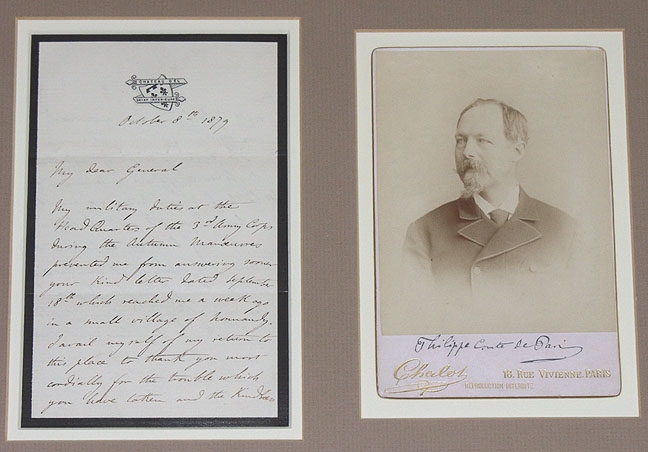 CHATEAU D'EU
SEINE INFERIEURE
October 8th 1879
My dear General
My military duties at the
Head Quarters of the 3rd Army Corps
during the Autumn Manœuvres
prevented me from answering sooner
your kind letter dated September
18th which reached me a week ago
in a small village of Normandy.
I avail myself of my return to
this place to thank you most
cordially for the trouble which
you have taken and the kindness
Philippe Comte de Paris
Chalot 18, RUE VIVIENNE, PARIS
REPRODUCTION INTERDITE